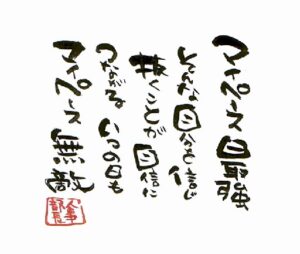 マイペース 最強
そんな自分を信じ
抜くことが 自信に
つながる いつの日も
マイペース 無敵